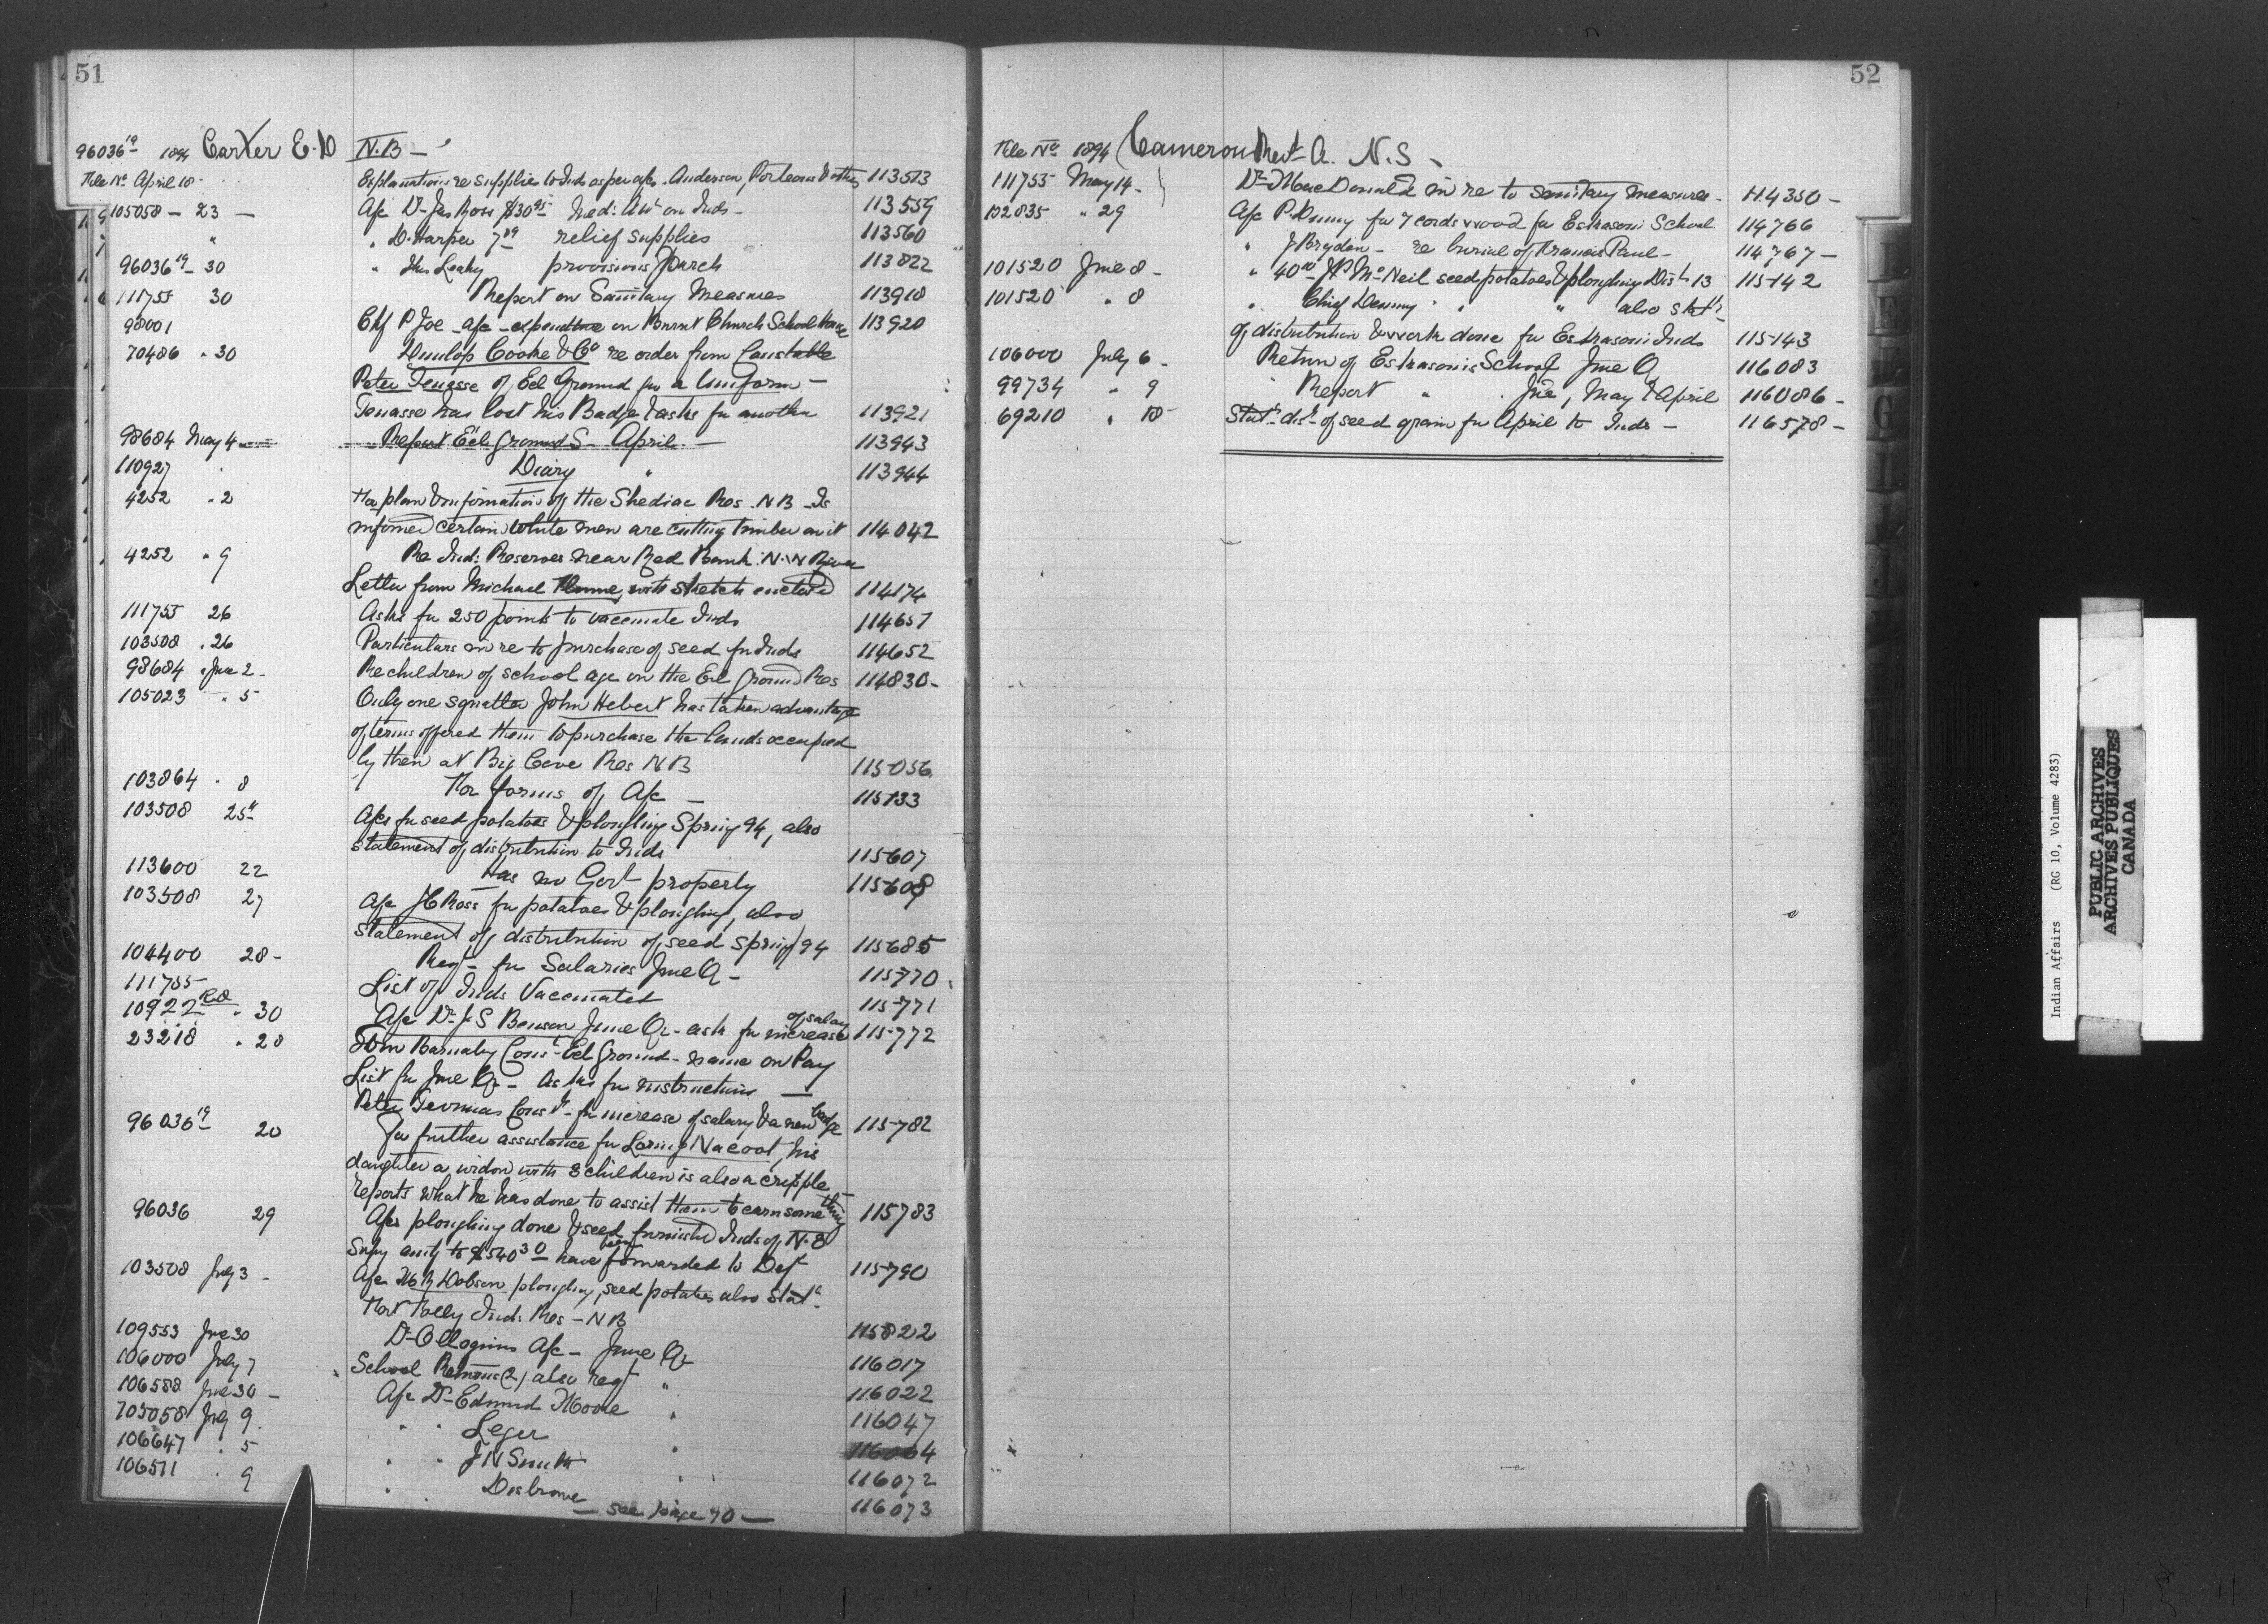 51
96036 19 1894 Carter E. D N.B —
File No April 18 - Explanation re supplies to Inds as per a/cs. Anderson, Porteous & others 113513
105058 — 23 — A/c Dr Jas Ross $30 95 Med: Att on Inds - 113559
" " D. Harper 7 89 relief supplies 113560
96036 19 - 30 " Jhs Leahy provisions March 113822
111755 30 Report on Sanitary Measures 113918
98001 Chf P Joe - a/c - expenditure on Burnt Church School House 113920
70486 " 30 Dunlop Cooke & Co re order from Constable
Peter Tenasse of Eel Ground for a Uniform —
Tenasse has lost his Badge & asks for another 113921
98684 May 4 Report Eel Ground S - April — 113943
110927 Diary " 113944
4252 " 2 For plan & information of the Shediac Res. N B - Is
informed certain white men are cutting timber on it 114042
4252 " 9 Re Ind: Reserves near Red Bank. N.W River
Letter from Michael with sketch enclosed 114174
111755 26 Asks for 250 points to vaccinate Inds 114651
103508 . 26 Particulars in re to purchase of seed for Inds 114652
98684 " June 2 - Re children of school age on the Eel Ground Res 114830 -
105023 " 5 Only one squatter John Hebert has taken advantage
of terms offered them to purchase the lands occupied
by them at Big Cove Res N B 115056
103864 " 8 For forms of A/c — 115133
103508 25th A/cs for seed potatoes & ploughing Spring 94, also
statement of distribution to Inds 115607
113600 22 Has no Govt property 115608
103508 27 A/c J C Ross for potatoes & ploughing, also
statement of distribution of seed spring 94 115685
104400 28 - Reqn for Salaries June Q - 115770
111755 List of Inds Vaccinated 115771
10922 Rd " 30 A/c Dr J S Benson June Qr - ask for increase of salary 115772
23218 " 28 Tom Barnaby Const - Eel Ground - name on Pay
List for June Qr - Asks for instructions —
Peter Const - for increase of salary & a new badge 115782
96036 19 20 For further assistance for Nacoot, his
daughter a widow with 8 children is also a cripple -
reports what he has done to assist them to earn something 115783
96036 29 A/cs ploughing done & seed furnished Inds of N. E
Supy amtg to $540 30 have been forwarded to Dept 115790
103508 July 3 - A/c Dobson ploughing, seed potatoes also Statt
Fort Folly Ind: Res - N B 115822
109553 June 30 Dr A/c - June Qr 116017
106000 July 7 School Returns (2) also reqt " 116022
106588 June 30 - A/c Dr Edmund Moore " 116047
105058 July 9 " " Leger " 116064
106647 " 5 " " J N Smith " 116072
106511 " 9 " " Disbrowe " 116073
— see page 70 —
52
File No 1894 Cameron Revd A. N.S -
111755 May 14 - Dr MacDonald in re to sanitary measures - 114350 -
102835 " 29 A/c P. Denny for 7 cords wood for Eskasoni School 114766
" J Brydon - re burial of Francis Paul - 114767 -
101520 June 8 - " 40 00 McNeil seed potatoes & ploughing Dist 13 115142
101520 " 8 " Chief Denny " " " also statt
of distribution & work done for Eskasoni Inds 115143
106000 July 6 - Return of Eskasonis School June Q 116083
99734 " 9 Report " June, May & April 116086 -
69210 " 18 Statt dist of seed grain for April to Inds - 116578 -
Indian Affairs (RG 10, Volume 4283)
PUBLIC ARCHIVES
ARCHIVES PUBLIQUES
CANADA